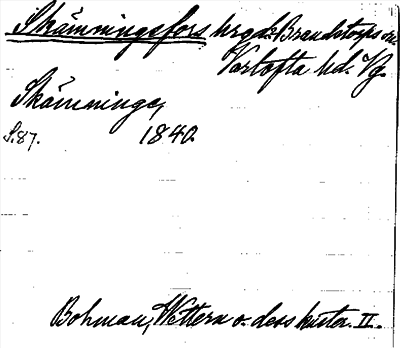 Skämningsfors hrgd. Brandstorps sn.
Vartofta hd. Vg.
Skäminge,
S.87. 1840
Bohman, Wettern o. dess kuster. II.